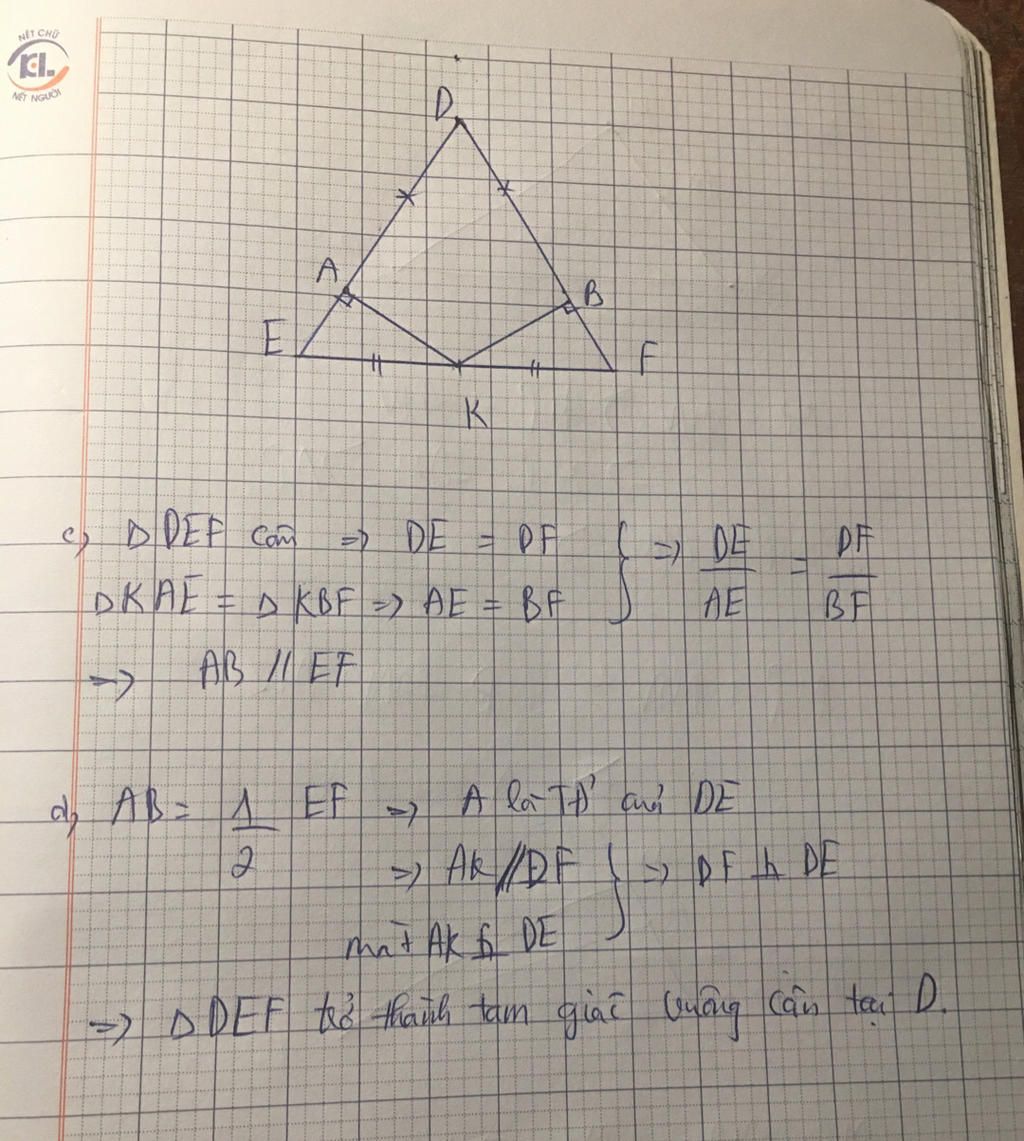 NÉT CHỮ
KL
NẾT NGƯỜI
D
A
B
E
F
K
c, Δ DEF cân => DE = DF } => DE/AE = DF/BF
Δ KAE = Δ KBF => AE = BF
=> AB // EF
d, AB = 1/2 EF => A là TĐ của DE
=> AK // DF } => DF ⊥ DE
mà AK ⊥ DE
=> Δ DEF trở thành tam giác vuông cân tại D.